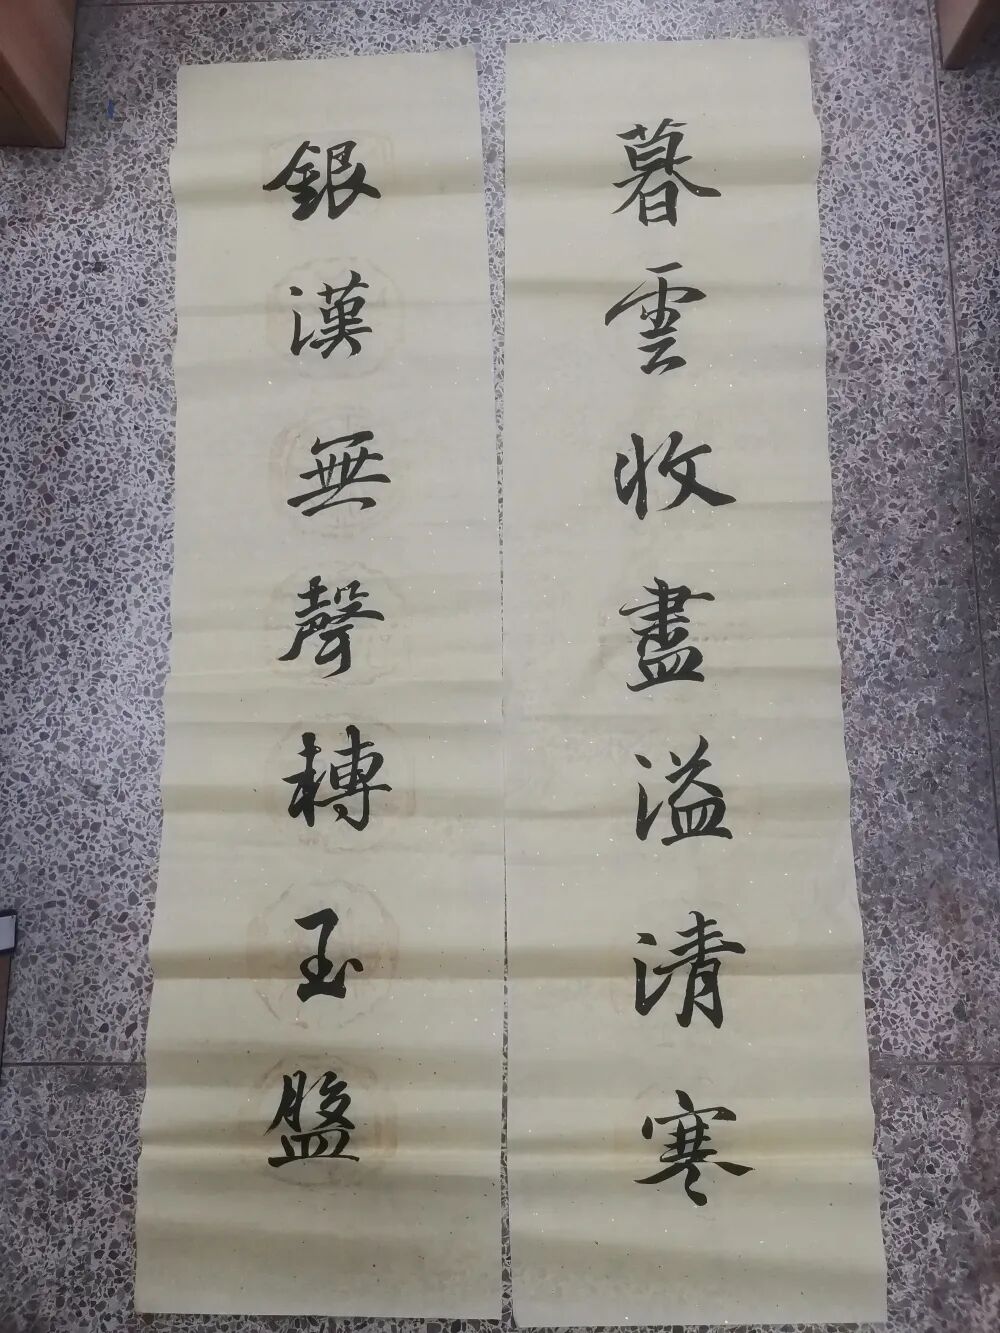 暮雲收盡溢清寒
銀漢無聲轉玉盤